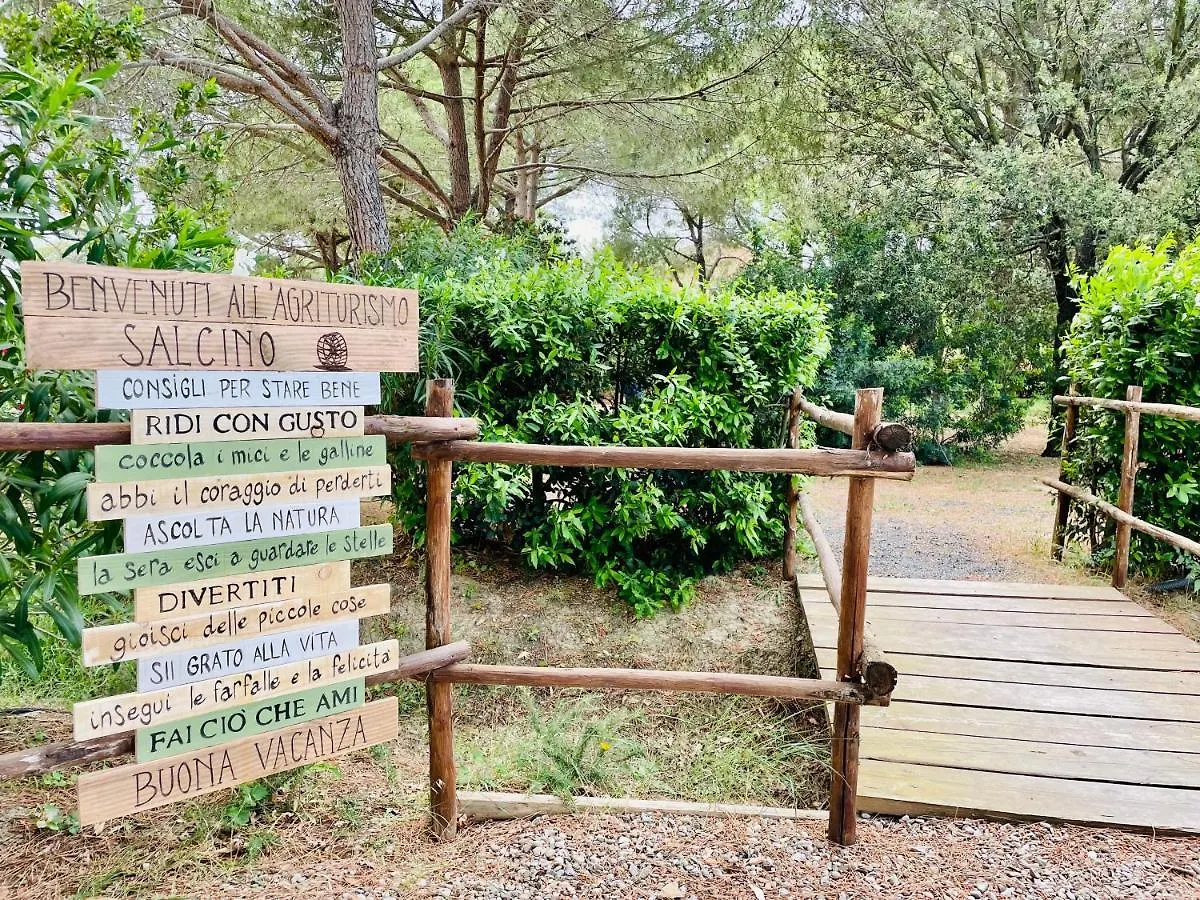 BENVENUTI ALL'AGRITURISMO
SALCINO
CONSIGLI PER STARE BENE
RIDI CON GUSTO
coccola i mici e le galline
abbi il coraggio di perderti
ASCOLTA LA NATURA
la sera esci a guardare le stelle
DIVERTITI
gioisci delle piccole cose
SII GRATO ALLA VITA
insegui le farfalle e la felicità
FAI CIÒ CHE AMI
BUONA VACANZA